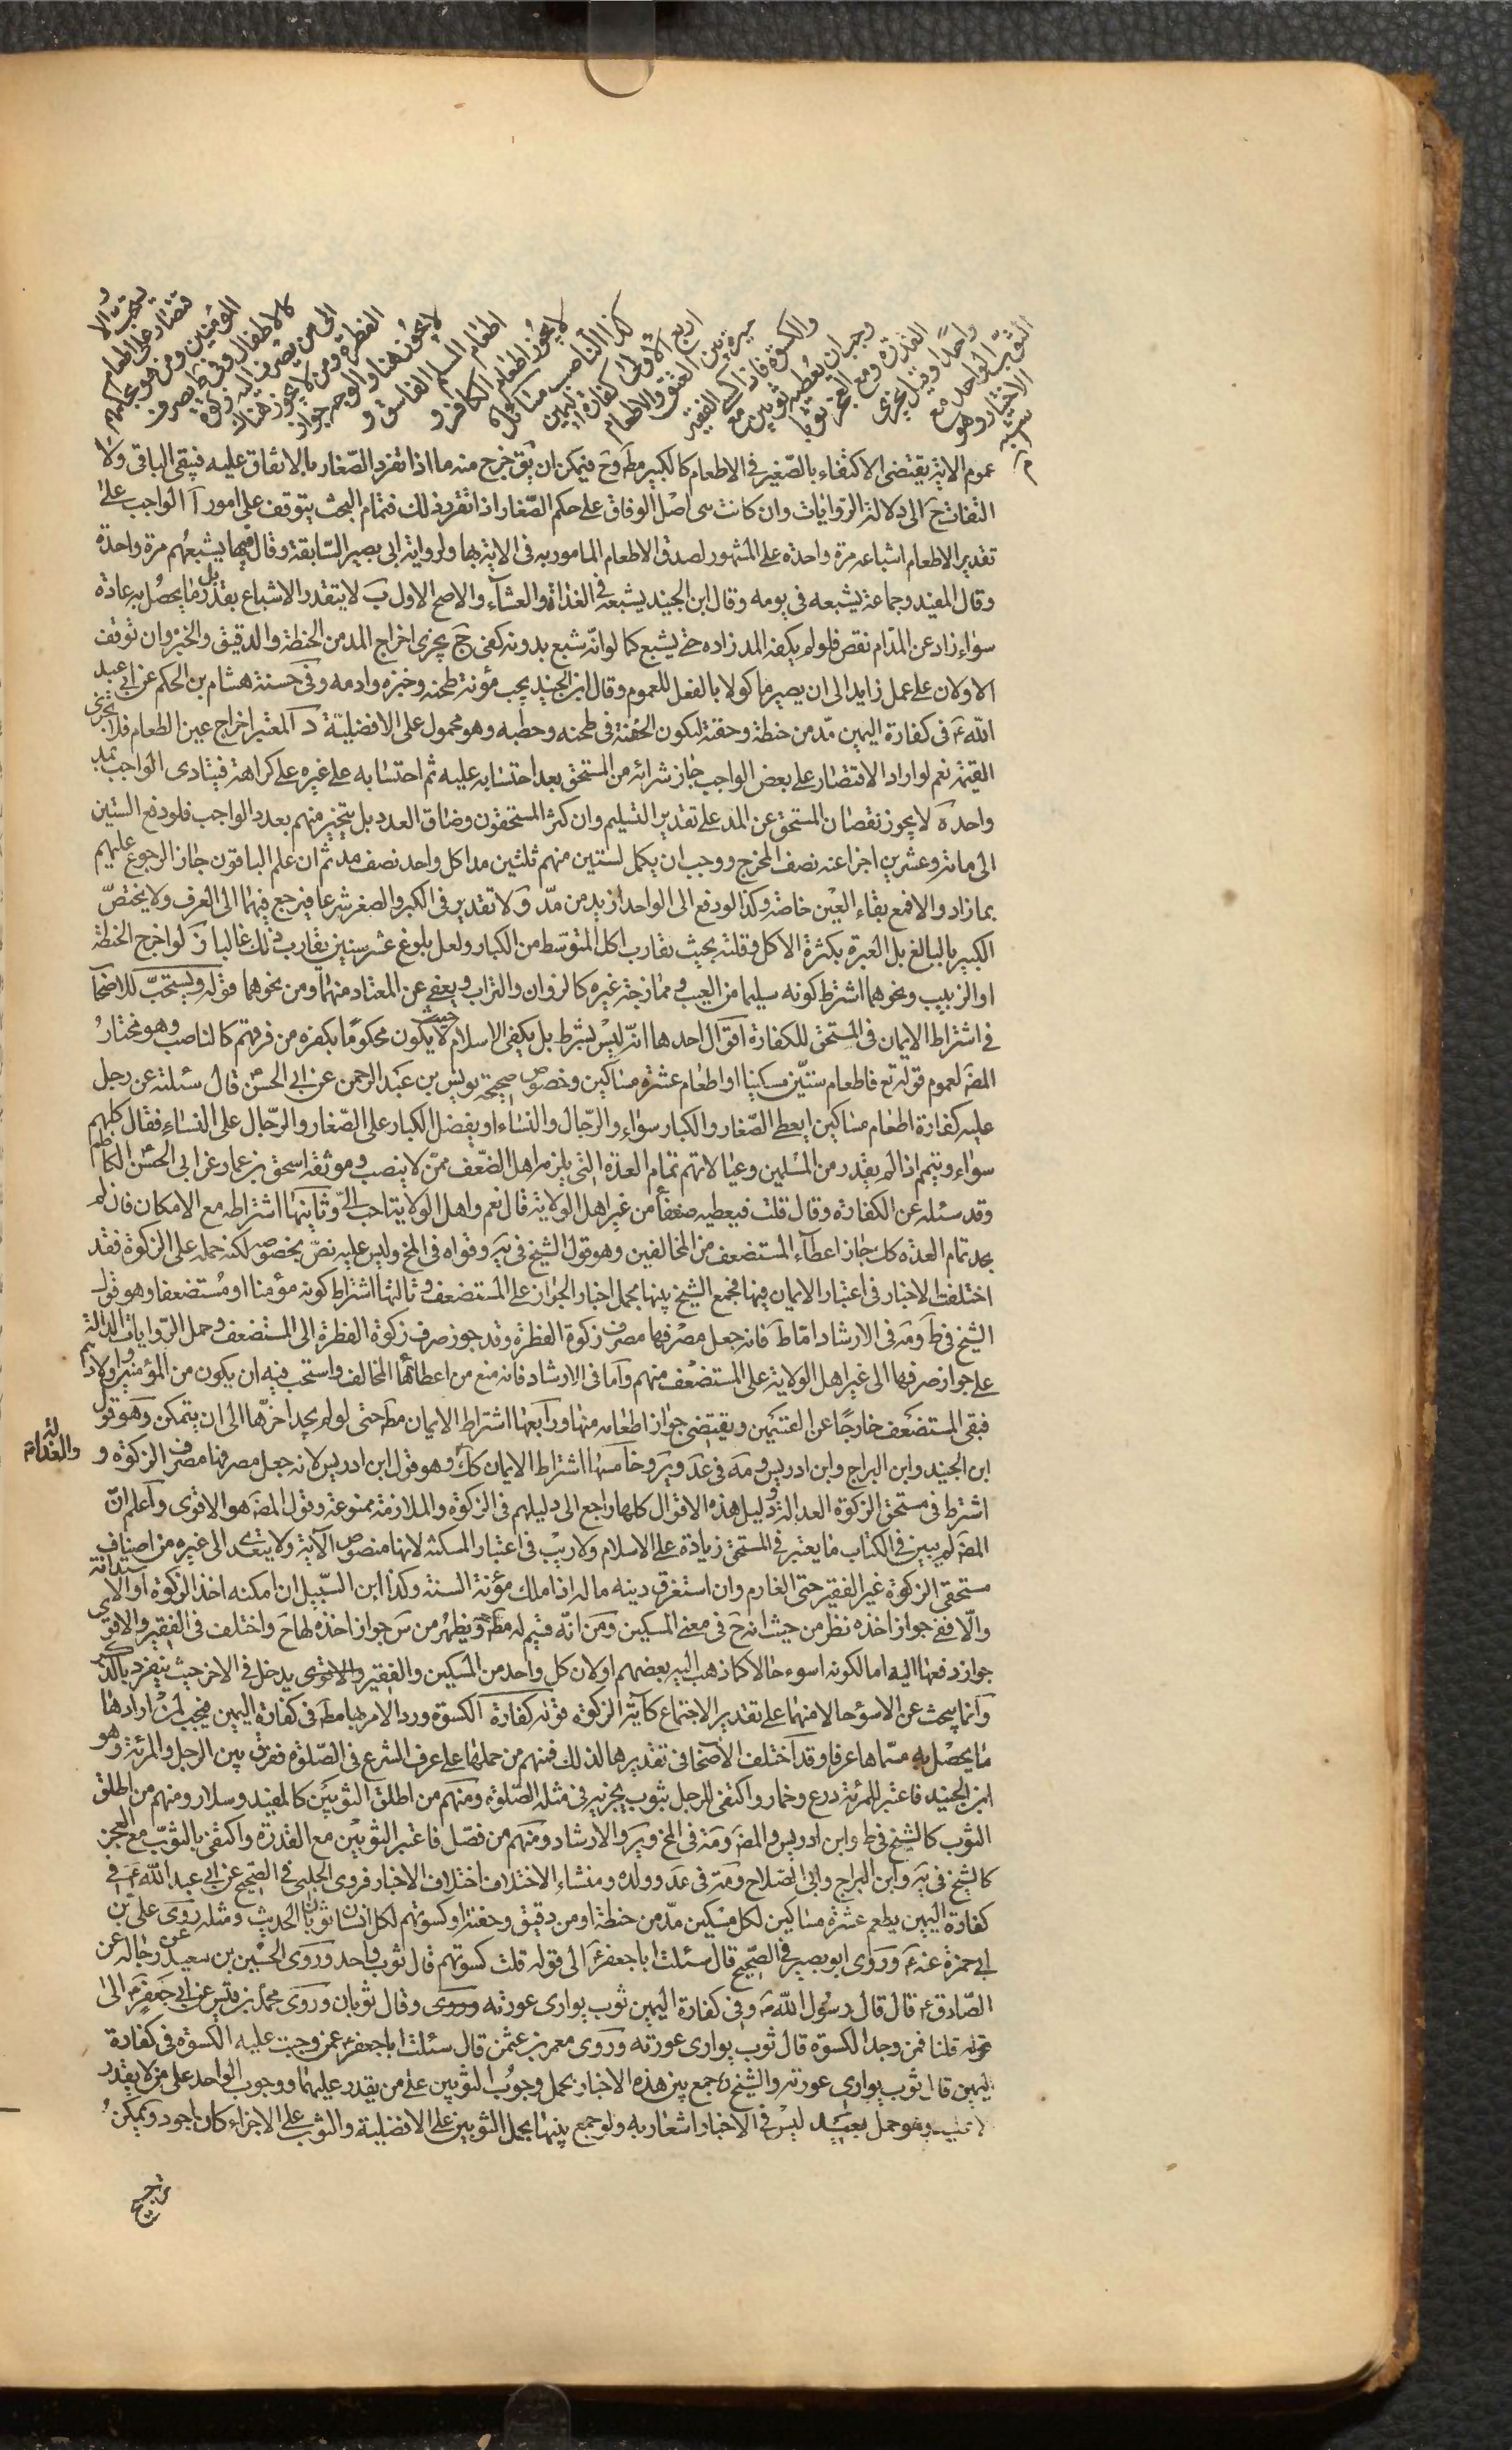 ويستحب الا
قتصار على اطعام
المؤمنين ومن هو بحكمهم
كالاطفال وفي ط يصرف
الى من يصرف اليه زكوة
الفطرة ومن لا يجوز هناك
لا يجوز هنا والوجه جواز
اطعام المسلم الفاسق و
لا يجوز اطعام الكافر و
كذا الناصب مسائل
اربع الاولى كفارة اليمين
مخيرة بين العتق والاطعام
والكسوة فاذا كسى الفقير
وجب ان يعطيه ثوبين مع
القدرة ومع العجز ثوبا
واحدا وقيل يجزى
الثوب الواحد مع
الاختيار وهو
اشبه
عموم الاية يقتضى الاكتفاء بالصغير في الاطعام كالكبير مط وح فيمكن ان يق خرج منه ما اذا انفرد الصغار بالاتفاق عليه فيبقى الباقى ولا
التفات ح الى دلالة الروايات وان كانت هى اصل الوفاق على حكم الصغار اذا تقرر ذلك فتمام البحث يتوقف على امور آ الواجب على
تقدير الاطعام اشباعه مرة واحدة على المشهور لصدق الاطعام المامور به في الاية بها ولرواية ابى بصير السابقة وقال فيها يشبعهم مرة واحدة
وقال المفيد وجماعة يشبعه في يومه وقال ابن الجنيد يشبعه في الغداة والعشاء والاصح الاول ب لا يتقدر الاشباع بقدر بل ما يحصل به عادة
سواء زاد عن المد ام نقص فلو لم يكفه المد زاده حتى يشبع كما لو انه شبع بدونه كفى ج يجزى اخراج المد من الحنطة والدقيق والخبز وان توقف
الاولان على عمل زايد الى ان يصير ماكولا بالفعل للعموم وقال ابن الجنيد يجب مؤنة طحنه وخبزه وادمه وفي حسنة هشام بن الحكم عن ابي عبد
الله ع في كفارة اليمين مد من حنطة وحفنة لتكون الحفنة في طحنه وحطبه وهو محمول على الافضلية د المعتبر اخراج عين الطعام فلا تجزى
القيمة نعم لو اراد الاقتصار على بعض الواجب جاز شرائه من المستحق بعد احتسابه عليه ثم احتسابه على غيره على كراهة فيتادى الواجب بمد
واحد ه لا يجوز نقصان المستحق عن المد على تقدير التسليم وان كثر المستحقون وضاق العدد بل يتخير منهم بعدد الواجب فلو دفع الستين
الى مائة وعشرين اجزا عنه نصف المخرج ووجب ان يكمل لستين منهم ثلثين مدا كل واحد نصف مد ثم ان علم الباقون جاز الرجوع عليهم
بما زاد والا فمع بقاء العين خاصة وكذا لو دفع الى الواحد ازيد من مد و لا تقدير في الكبر والصغر شرعا فيرجع فيهما الى العرف ولا يختص
الكبير بالبالغ بل العبرة بكثرة الاكل وقلته بحيث تقارب اكل المتوسط من الكبار ولعل بلوغ عشر سنين يقارب ذلك غالبا ز لو اخرج الحنطة
او الزبيب ونحوهما اشترط كونه سليما من العيب وممازجة غيره كالزوان والتراب ويعفى عن المعتاد منهما ومن نحوهما قوله ويستحب للاصحاب
في اشتراط الايمان في المستحق للكفارة اقوال احدها انه ليس بشرط بل يكفى الاسلام حيث لا يكون محكوما بكفره من فرقهم كالناصب وهو مختار
المص لعموم قوله تع فاطعام ستين مسكينا او اطعام عشرة مساكين وخصوص صحيحة يونس بن عبد الرحمن عن ابي الحسن قال سئلته عن رجل
عليه كفارة اطعام مساكين ايعطى الصغار والكبار سواء والرجال والنساء او يفضل الكبار على الصغار والرجال على النساء فقال كلهم
سواء ويتمم اذا لم يقدر من المسلمين وعيالاتهم تمام العدة التى يلزمه اهل الضعف ممن لا ينصب وموثقة اسحق بن عمار عن ابي الحسن الكاظم
وقد سئله عن الكفارة وقال قلت فيعطيه ضعفا من غير اهل الولاية قال نعم واهل الولاية احب الى وثانيها اشتراطه مع الامكان فان لم
يجد تمام العدة كك جاز اعطاء المستضعف من المخالفين وهو قول الشيخ في يه وقواه في المخ وليس عليه نص بخصوصه لكنه حمله على الزكوة فقد
اختلفت الاخبار في اعتبار الايمان فيها فجمع الشيخ بينها بحمل اخبار الجواز على المستضعف وثالثها اشتراط كونه مؤمنا او مستضعفا وهو قول
الشيخ في ط ومه في الارشاد اما ط فانه جعل مصرفها مصرف زكوة الفطرة وقد جوز صرف زكوة الفطرة الى المستضعف وحمل الروايات الدالة
على جواز صرفها الى غير اهل الولاية على المستضعف منهم واما في الارشاد فانه منع من اعطائها المخالف واستحب فيه ان يكون من المؤمنين واولادهم
فبقى المستضعف خارجا عن القسمين ويقتضى جواز اطعامه منها ورابعها اشتراط الايمان مط حتى لو لم يجد اخرها الى ان يتمكن وهو قول
ابن الجنيد وابن البراج وابن ادريس ومه في عد وير وخامسها اشتراط الايمان كك وهو قول ابن ادريس لانه جعل مصرفها مصرف الزكوة و
والعدالة
اشترط في مستحق الزكوة العدالة ودليل هذه الاقوال كلها راجع الى دليلهم في الزكوة والملازمة ممنوعة وقول المص هو الاقوى واعلم ان
المص لم يبين في الكتاب ما يعتبر في المستحق زيادة على الاسلام ولا ريب في اعتبار المسكنة لانها منصوص الآية ولا يتعدى الى غيره من اصناف
مستحقى الزكوة غير الفقير حتى الغارم وان استغرق دينه ماله اذا ملك مؤنة السنة وكذا ابن السبيل ان امكنه اخذ الزكوة او الاستدانة
والا ففى جواز اخذه نظر من حيث انه ح في معنى المسكين ومن انه قسيم له مط ويظهر من س جواز اخذه لها ح واختلف في الفقير والاقوى
جواز دفعها اليه اما لكونه اسوء حالا كما ذهب اليه بعضهم او لان كل واحد من المسكين والفقير والاقوى يدخل في الاخر حيث ينفرد بالذكر
وانما يبحث عن الاسوء حالا منهما على تقدير الاجتماع كآية الزكوة قوله كفارة الكسوة ورد الامر بها مط في كفارة اليمين فيجب لمن ارادها
ما يحصل به مسماها عرفا وقد اختلف الاصحاب في تقديرها لذلك فمنهم من حملها على عرف الشرع في الصلوة ففرق بين الرجل والمرئة وهو
ابن الجنيد فاعتبر للمرئة درع وخمار واكتفى للرجل بثوب يجزيه في مثله الصلوة ومنهم من اطلق الثوبين كالمفيد وسلار ومنهم من اطلق
الثوب كالشيخ في ط وابن ادريس والمص ومه في المخ وير والارشاد ومنهم من فصل فاعتبر الثوبين مع القدرة واكتفى بالثوب مع العجز
كالشيخ في يه وابن البراج وابى الصلاح ومه في عد وولده ومنشاء الاختلاف اختلاف الاخبار فروى الحلبى في الصحيح عن ابي عبد الله ع في
كفارة اليمين يطعم عشرة مساكين لكل مسكين مد من حنطة او من دقيق وحفنة او كسوتهم لكل انسان ثوبان الحديث ومثله روى على بن
ابي حمزة عنه ع وروى ابو بصير في الصحيح قال سئلت ابا جعفر ع الى قوله قلت كسوتهم قال ثوب واحد وروى الحسين بن سعيد عن رجاله عن
الصادق ع قال قال رسول الله ص في كفارة اليمين ثوب يوارى عورته وروى وقال ثوبان وروى محمد بن قيس عن ابي جعفر ع الى
قوله قلنا فمن وجد الكسوة قال ثوب يوارى عورته وروى معمر بن عثمن قال سئلت ابا جعفر ع عمن وجبت عليه الكسوة في كفارة
اليمين قال ثوب يوارى عورته والشيخ ره جمع بين هذه الاخبار بحمل وجوب الثوبين على من يقدر عليهما ووجوب الواحد على من لا يقدر
وهو حمل بعيد ليس في الاخبار اشعار به ولو جمع بينها بحمل الثوبين على الافضلية والثوب على الاجزاء كان اجود ويمكن
ترجيح